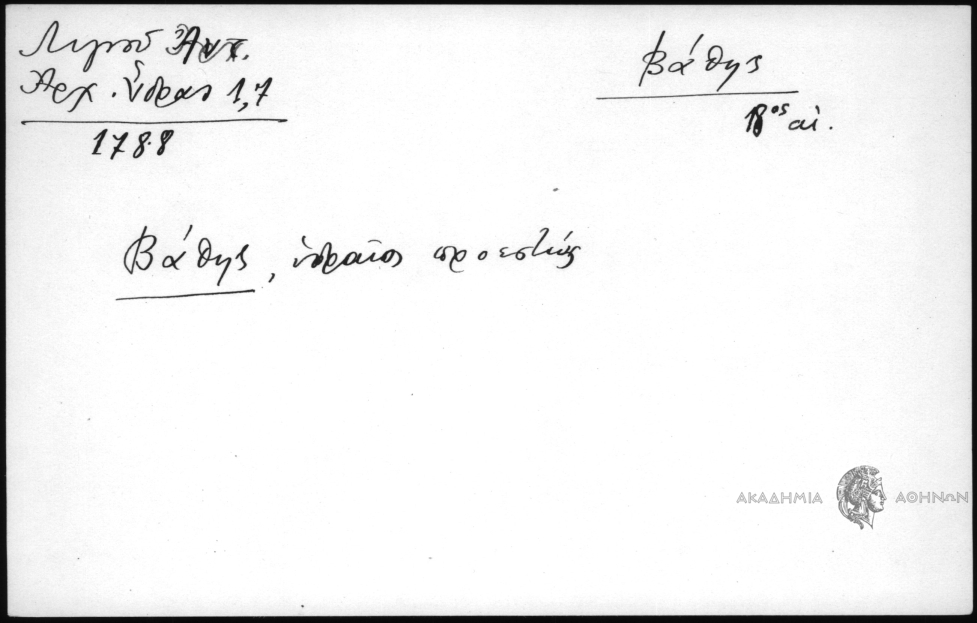 Λιγνοῦ Ἀντ.
Ἀρχ. Ὕδρας 1,7
1788
Βάθης
18ος αἰ.
Βάθης, ὑδραῖος προεστώς
ΑΚΑΔΗΜΙΑ ΑΘΗΝΩΝ